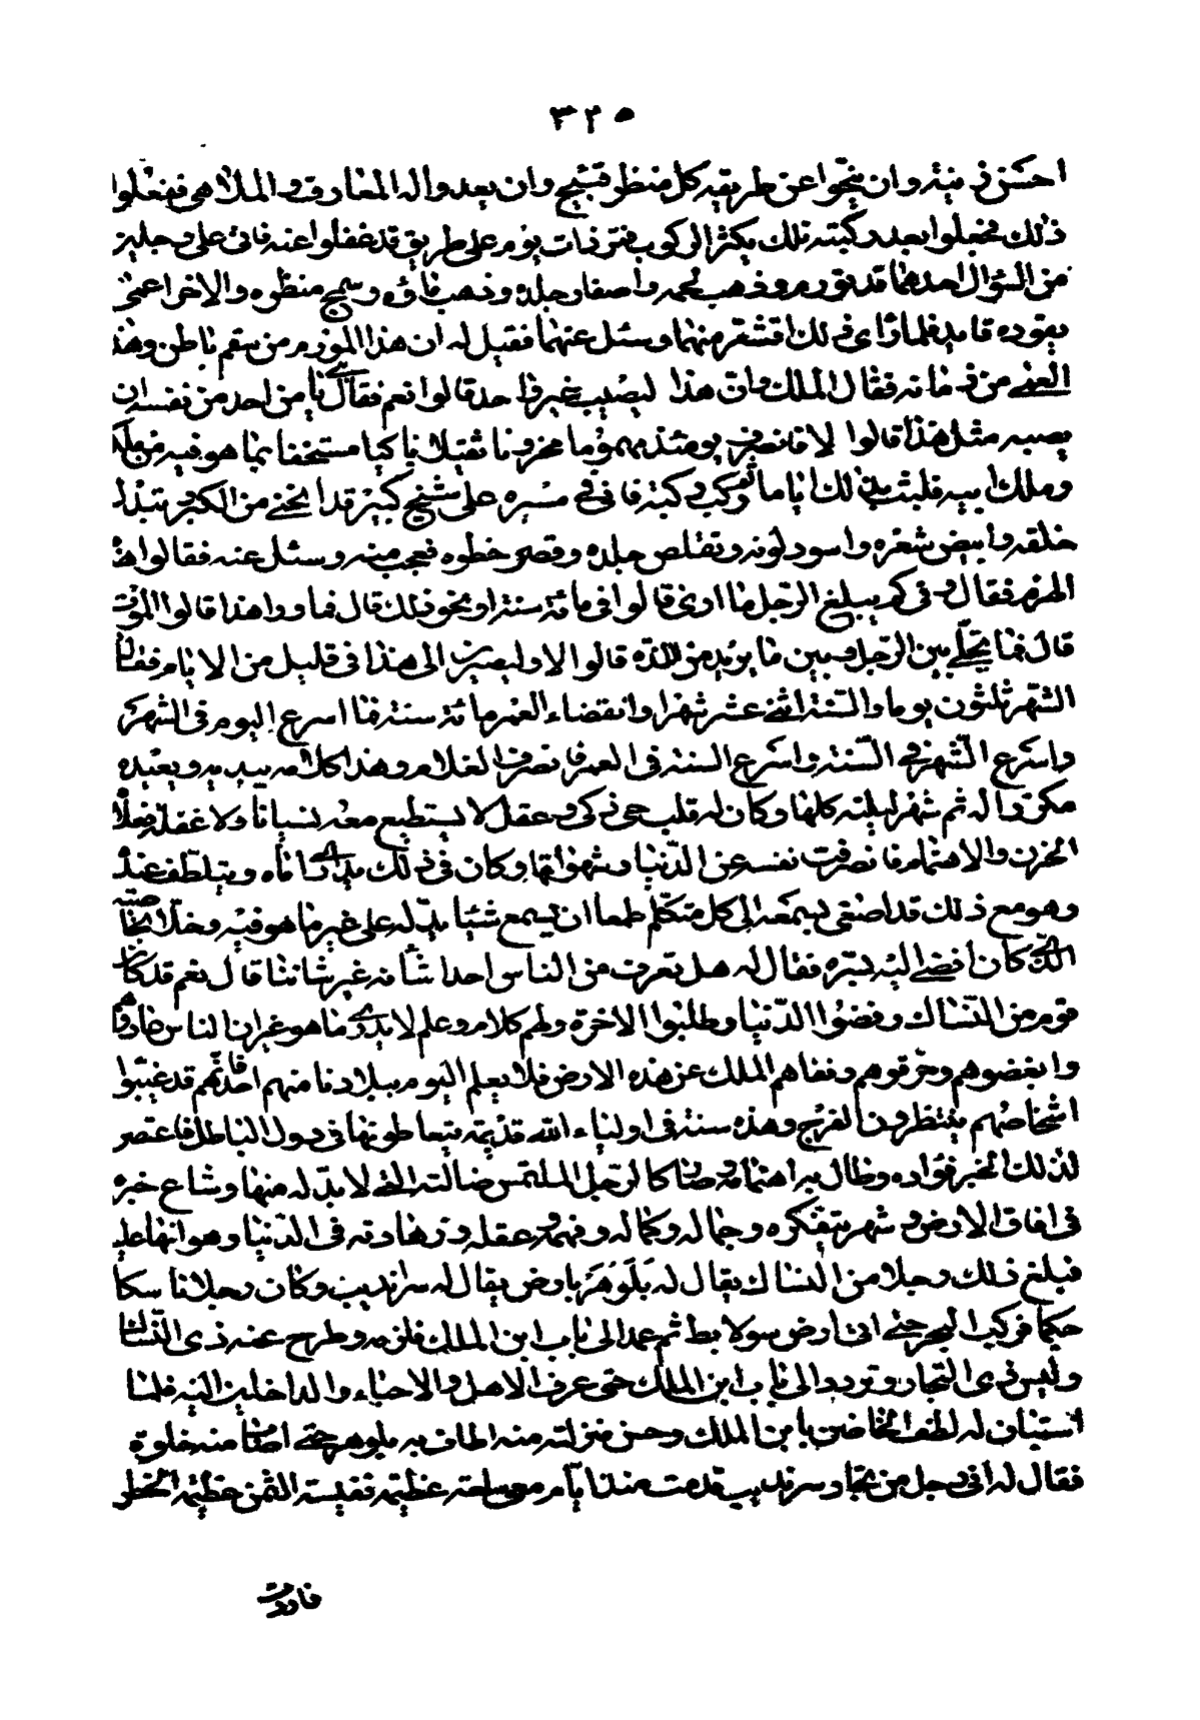 ٣٢٥
احسن زينته وان ينحوا عن طريقه كل منظر قبيح وان يعدوا له المعازف والملاهي ففعلوا
ذلك فجعل بعد ركبته تلك يكثر الركوب فمر ذات يوم على طريق قد غفلوا عنه فاتى على رجلين
من السؤال احدهما قد تورم وذهب لحمه واصفر جلده وذهب ماؤه وسمج منظره والاخر اعمى
يقوده قايد فلما راى ذلك اقشعر منهما وسئل عنهما فقيل له ان هذا المورم من سقم باطن وهذا
العمى من زمانة فقال الملك وان هذا ليصيب غير واحد قالوا نعم فقال هل يامن احد من نفسه ان
يصيبه مثل هذا قالوا لا فانصرف يومئذ مهموما محزونا ثقيلا باكيا مستخفا بما هو فيه من ملكه
وملك ابيه فلبث بذلك اياما ثم ركب ركبة فاتى في مسيره على شيخ كبير قد انحنى من الكبر وتبدل
خلقه وابيض شعره واسود لونه وتقلص جلده وقصر خطوه فعجب منه وسئل عنه فقالوا هذا
الهرم فقال وفي كم يبلغ الرجل ما ارى قالوا في مائة سنة او نحو ذلك قال فما وراء هذا قالوا الموت
قال فما يخلى بين الرجل وبين ما يريد من المدة قالوا لا وليصيرن الى هذا في قليل من الايام فقال
الشهر ثلثون يوما والسنة اثنى عشر شهرا وانقضاء العمر مائة سنة فما اسرع اليوم في الشهر
واسرع الشهر في السنة واسرع السنة في العمر فانصرف الغلام وهذا كلامه يبديه ويعيده
مكررا له ثم سهر ليلته كلها وكان له قلب حي ذكي وعقل لا يستطيع معه نسيانا ولا غفلة فعلاه
الحزن والاهتمام فانصرفت نفسه عن الدنيا وشهواتها وكان في ذلك يدارى اباه ويتلطف عنده
وهو مع ذلك قد اصغى بسمعه الى كل متكلم طمعا ان يسمع شيئا يدله على غير ما هو فيه وخلا بحاضنته
الذي كان افضى اليه بسره فقال له هل تعرف من الناس احدا شأنه غير شاننا قال نعم قد كان
قوم من النساك رفضوا الدنيا وطلبوا الاخرة ولهم كلام وعلم لا يدرى ما هو غير ان الناس عادوهم
وابغضوهم وحرقوهم ونفاهم الملك عن هذه الارض فلا يعلم اليوم ببلادنا منهم احد فانهم قد غيبوا
اشخاصهم ينتظرون الفرج وهذه سنة في اولياء الله قديمة يتعاطونها في دول الباطل فاغتص
لذلك الخبر فؤاده وطال به اهتمامه وصار كالرجل الملتمس ضالته التي لا بد له منها وشاع خبره
في افاق الارض وشهر بتفكره وجماله وكماله وفهمه وعقله وزهادته في الدنيا وهوانها عليه
فبلغ ذلك رجلا من النساك يقال له بَلَوهَر بارض يقال له سرانديب وكان رجلا ناسكا
حكيما فركب البحر حتى اتى ارض سولابط ثم عمد الى باب ابن الملك فلزمه وطرح عنه زي النساك
ولبس زي التجار وتردد الى باب ابن الملك حتى عرف الاهل والاحباء والداخلين اليه فلما
استبان له لطف الحاضن بابن الملك وحسن منزلته منه اطاف به بلوهر حتى اصاب منه خلوة
فقال له اني رجل من تجار سرنديب قدمت منذ ايام ومعي سلعة عظيمة نفيسة الثمن عظيمة الخطر
فاردت